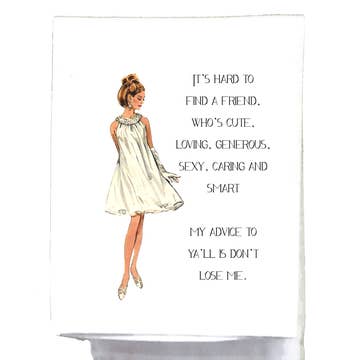 It's hard to
find a friend,
who's cute,
loving, generous,
sexy, caring and
smart
my advice to
ya'll is don't
lose me.